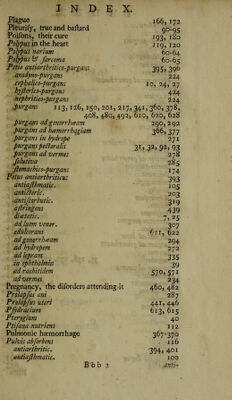 INDEX.
Plague 166, 172
Pleurisy, true and bastard 90-95
Poisons, their cure 193, 180
Polypus in the heart 119, 120
Polypus narium 60-64
Polypus & sarcoma 60-65
Potio antiarthritica-purgans 395, 396
anodyno-purgans 224
cephalico-purgans 10, 24, 27
hysterico-purgans 424
nephritico-purgans 224
purgans 113, 126, 150, 201, 217, 341, 360, 378,
408, 480, 492, 610, 620, 628
purgans ad gonorrhœam 290, 292
purgans ad hæmorrhagiam 366, 377
purgans in hydrope 271
purgans pectoralis 31, 32, 92, 93
purgans ad vermes 278
solutiva 285
stomachico-purgans 174
Potus antiarthriticus 393
antiasthmatic. 105
anticteric. 203
antiscorbutic. 319
astringens 439
diætetic. 7, 25
ad luem vener. 307
edulcorans 671, 622
ad gonorrhœam 294
ad hydropem 272
ad lepram 335
in ophthalmia 39
ad rachitidem 570, 571
ad vermes 234
Pregnancy, the disorders attending it 460, 482
Prolapsus ani 287
Prolapsus uteri 441, 446
Psydracium 613, 615
Pterygium 40
Ptisana nutriens 112
Pulmonic hæmorrhage 367-370
Pulvis absorbens 116
antiarthritic. 394, 401
antiasthmatic. 100
Bbb 2 anti-